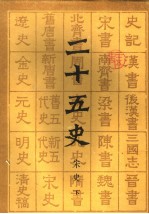 史記 漢書 後漢書 三國志 晉書
宋書 南齊書 梁書 陳書 魏書
二十五史
宋史下
舊唐書 新唐書 舊五代史 新五代史 宋史
遼史 金史 元史 明史 清史稿